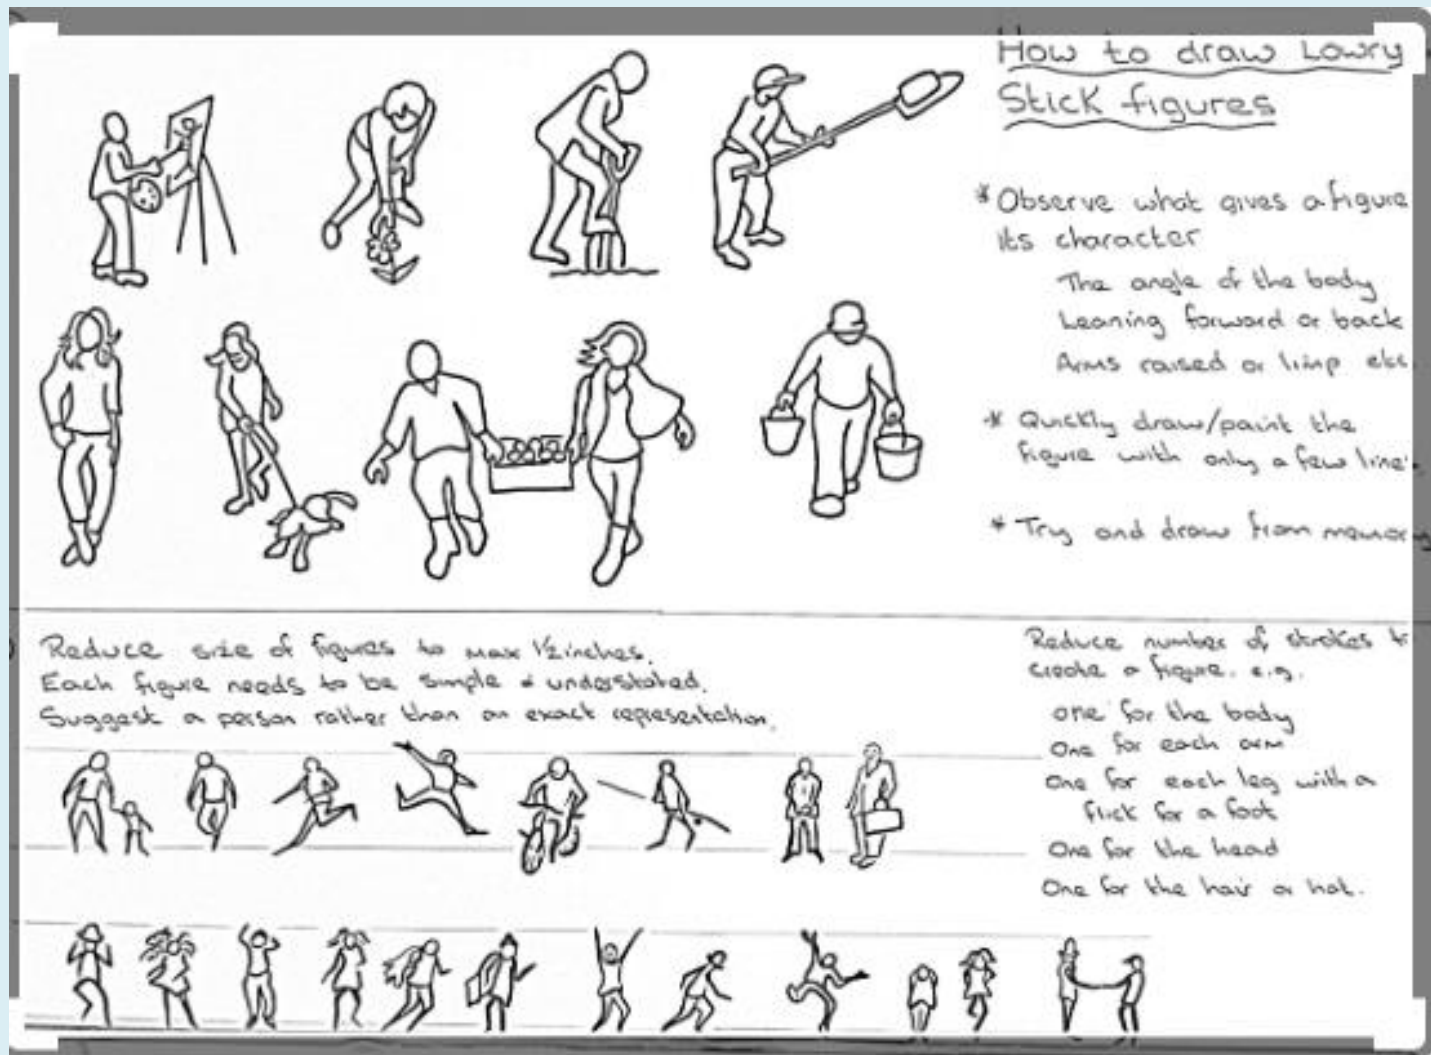 How to draw Lowry
Stick figures
* Observe what gives a figure
its character
The angle of the body
Leaning forward or back
Arms raised or limp etc.
* Quickly draw/paint the
figure with only a few line
* Try and draw from memory
Reduce size of figures to max 1½ inches.
Each figure needs to be simple & understated.
Suggest a person rather than an exact representation.
Reduce number of strokes to
create a figure. e.g.
one for the body
One for each arm
One for each leg with a
flick for a foot
One for the head
One for the hair or hat.